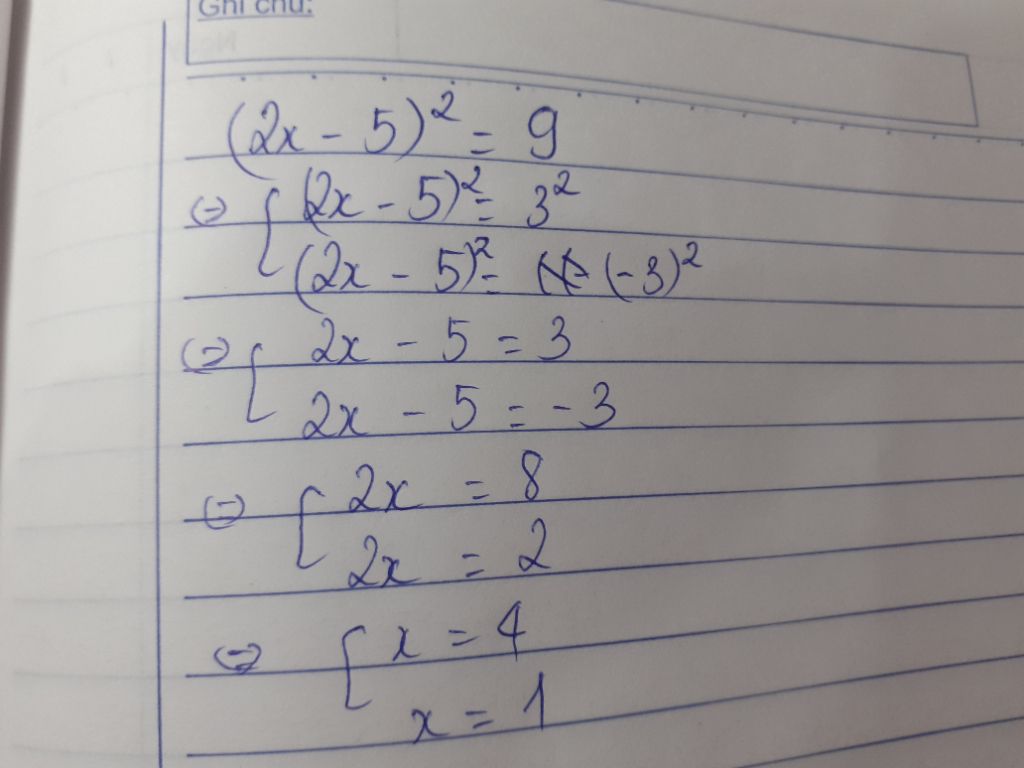 Ghi chú:
(2x - 5)² = 9
⇔ { (2x - 5)² = 3²
(2x - 5)² = (-3)²
⇔ { 2x - 5 = 3
2x - 5 = -3
⇔ [ 2x = 8
2x = 2
⇔ { x = 4
x = 1